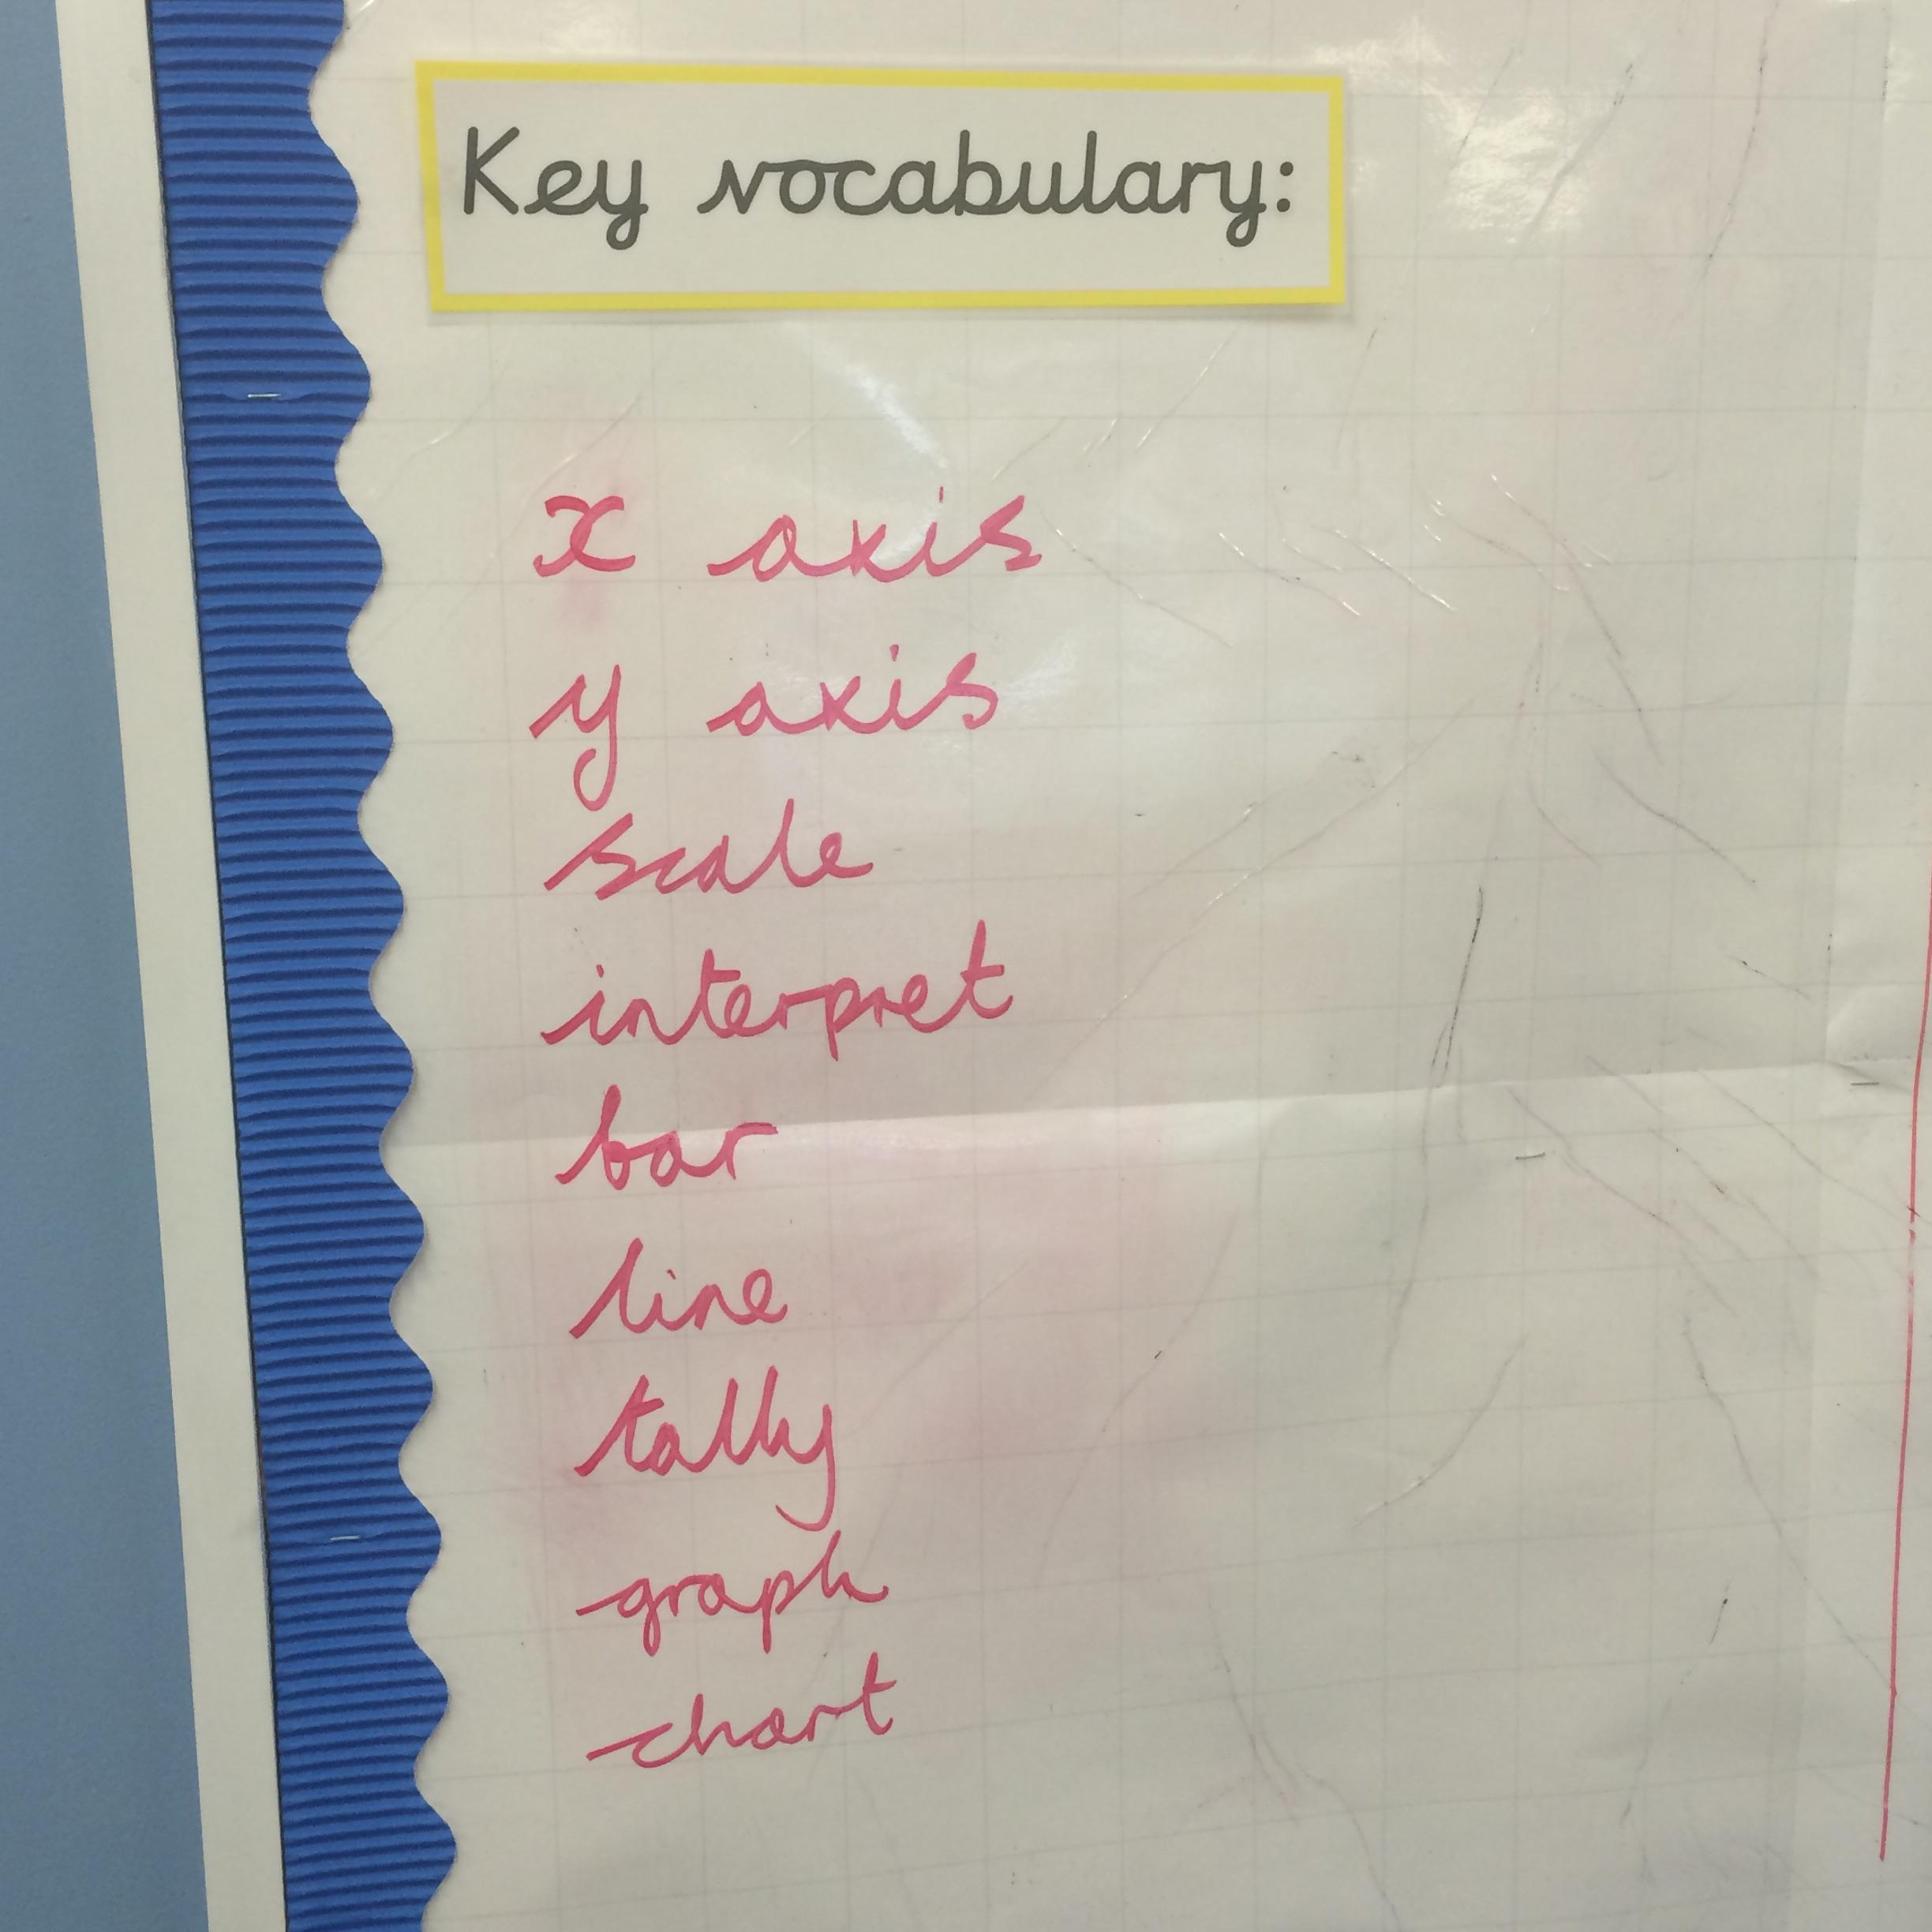 Key vocabulary:
x axis
y axis
scale
interpret
bar
line
tally
graph
chart